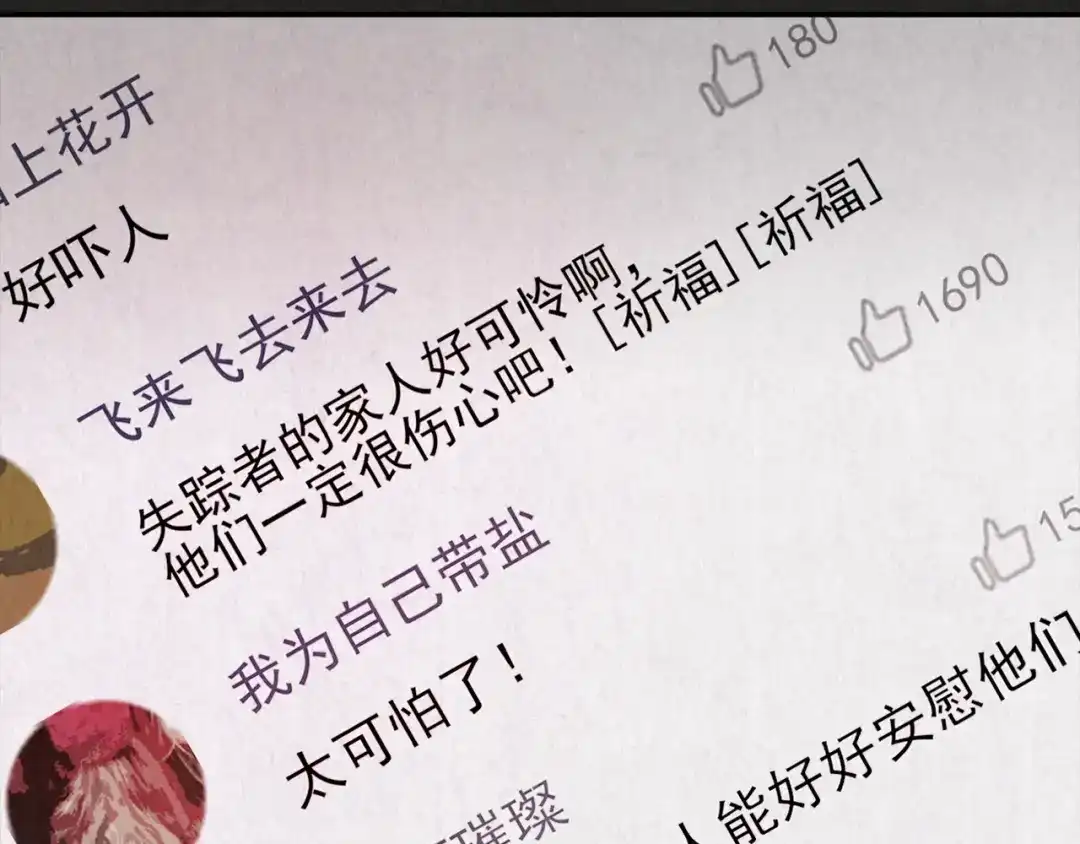 180
上花开
好吓人
飞来飞去来去
失踪者的家人好可怜啊，
他们一定很伤心吧！[祈福][祈福]
1690
我为自己带盐
太可怕了！
15
璀璨
人能好好安慰他们